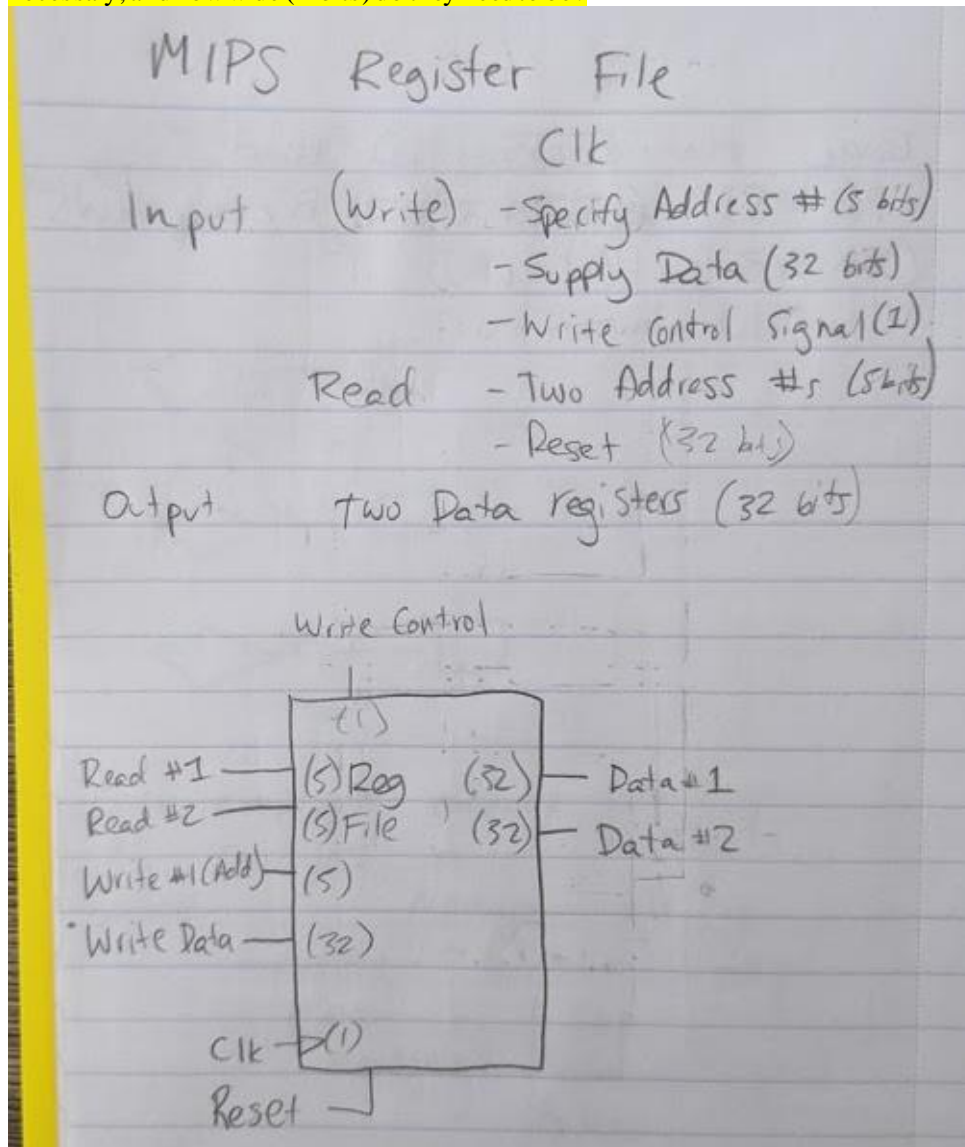 MIPS Register File
Clk
Input (Write) - Specify Address # (5 bits)
- Supply Data (32 bits)
- Write Control Signal (1)
Read - Two Address #s (5 bits)
- Reset (32 bits)
Output Two Data registers (32 bits)
Write Control
(1)
Read #1 (5) Reg (32) Data #1
Read #2 (5) File (32) Data #2
Write #1 (Add) (5)
Write Data (32)
Clk (1)
Reset